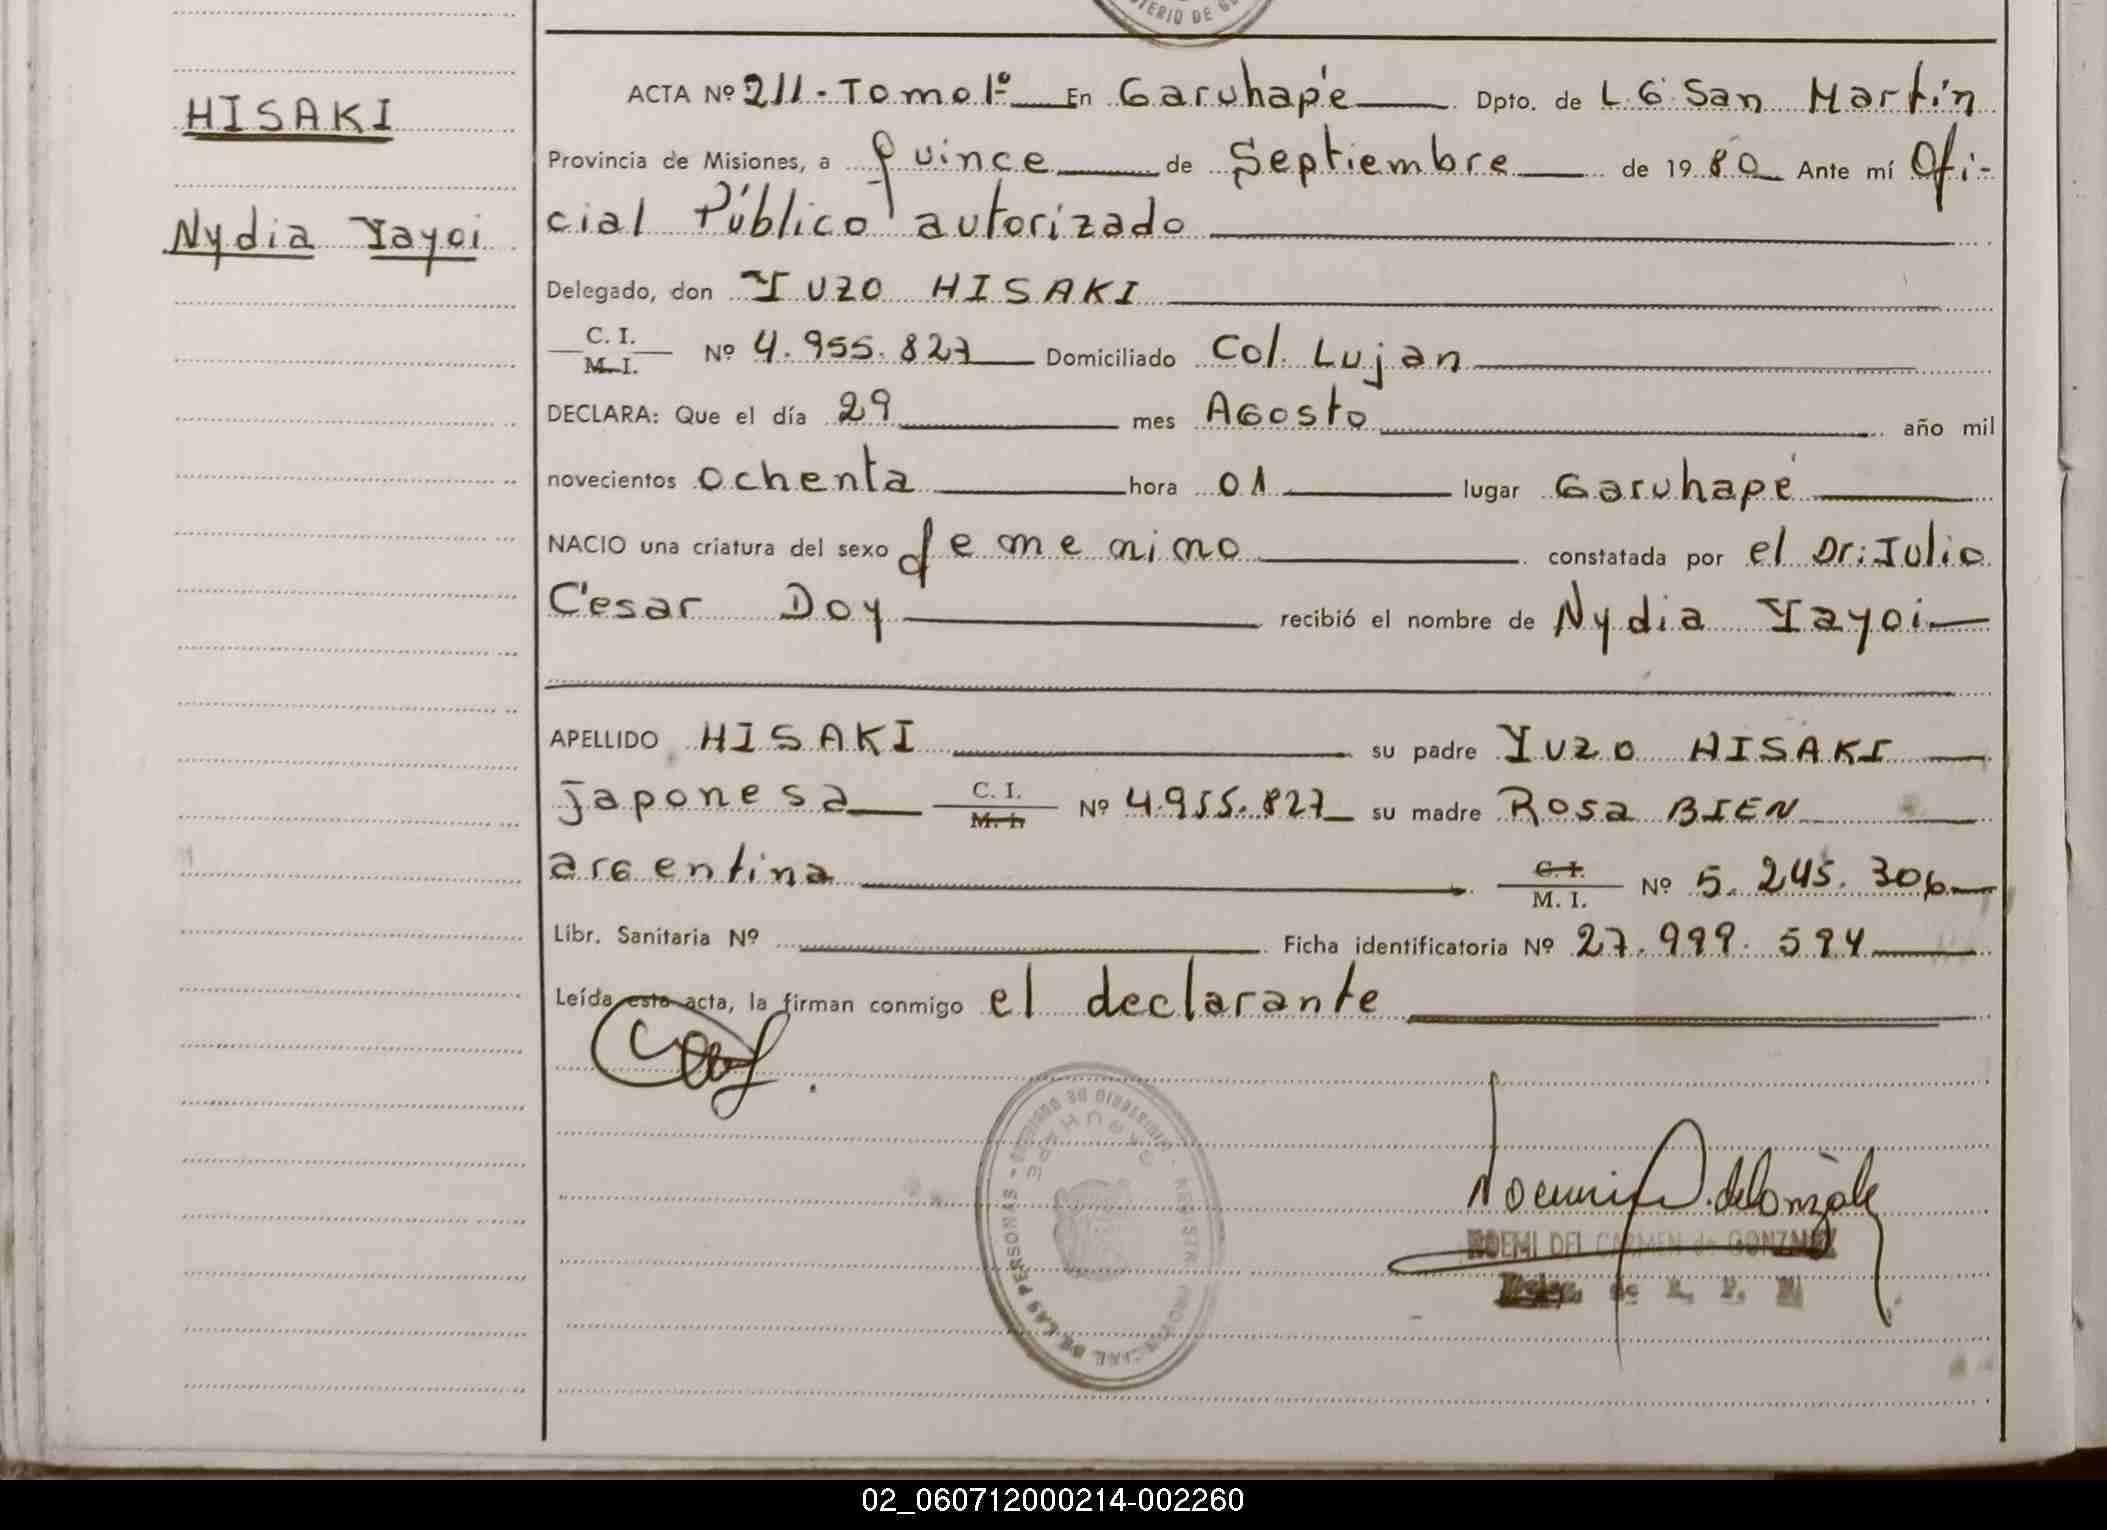 MINISTERIO DE GO
HISAKI
Nydia Yayoi
ACTA Nº 211 - Tomo 1º En Garuhapé Dpto. de L G San Martín
Provincia de Misiones, a quince de Septiembre de 1980 Ante mí Ofi-
cial Público autorizado
Delegado, don YUZO HISAKI
C. I.
M. I.
Nº 4.955.827 Domiciliado Col. Lujan
DECLARA: Que el día 29 mes AGosto año mil
novecientos ochenta hora 01 lugar Garuhapé
NACIO una criatura del sexo femenino constatada por el Dr: Julio
César Doy recibió el nombre de Nydia Yayoi
APELLIDO HISAKI su padre YUZO HISAKI
japonesa C. I. M. I. Nº 4.955.827 su madre Rosa BIEN
argentina C. I. M. I. Nº 5.245.306
Libr. Sanitaria Nº Ficha identificatoria Nº 27.999.594
Leída esta acta, la firman conmigo el declarante
MINISTERIO DE GOBIERNO - REGISTRO PROVINCIAL DE LAS PERSONAS -
GARUHAPE
NOEMI DEL CARMEN de GONZALEZ
02_060712000214-002260